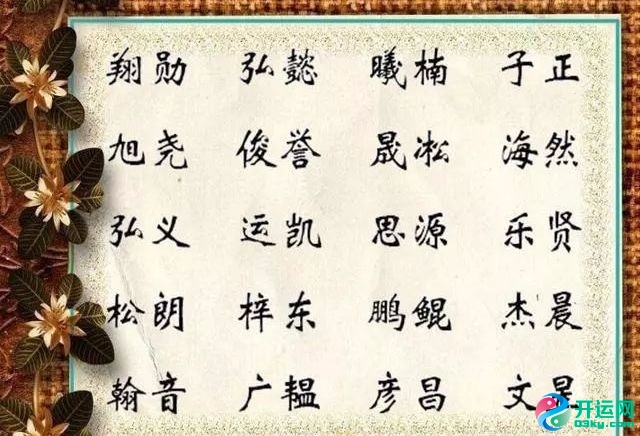 翔勋 弘懿 曦楠 子正
旭尧 俊誉 晟凇 海然
弘义 运凯 思源 乐贤
松朗 梓东 鹏鲲 杰晨
翰音 广韫 彦昌 文昱
开运网
09ky.com